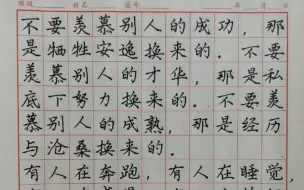 班级 姓名 座号 年 月 日
不要羡慕别人的成功，那
是牺牲安逸换来的．不要
羡慕别人的才华，那是私
底下努力换来的．不要羡
慕别人的成熟，那是经历
与沧桑换来的．
有人在奔跑，有人在睡觉，